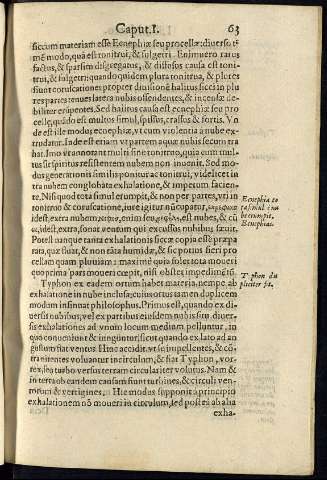 Caput. I. 63
siccum materiam esse Ecnephiæ seu procellæ: diverso tñ
mẽ modo, quã est tonitrui, & fulgetri. Enimuero rarus
factus, & sparsim disgregatus, & diffusus causa est toni-
trui, & fulgetri: quando quidem plura tonitrua, & plures
sũnt coruscationes propter diuisionẽ halitus sicci in plu
res partes tenues latera nubis offendentes, & incensæ de-
biliter erũpentes. Sed halitus causa est ecnephiæ seu pro
cellæ, quãdo est multus simul, spissus, crassus & fortis. Vn
de est ille modus ecnephiæ, vt cum violentia à nube ex-
trudatur. Inde est etiam vt partem aquæ nubis secum tra
hat. Imo vt annotant multi sine tonitruo, quia cum mul-
tus sit spiritus resistentem nubem non inuenit. Sed mo-
dus generationis similis ponitur ac tonitrui, videlicet in
tra nubem conglobata exhalatione, & impetum facien-
te. Nisi quod tota simul erumpit, & non per partes, vt in
tonitruo & coruscatione, iure igitur nũcupatur,
idest, extra nubem enim seu est nubes, & cũ
idest, extra, sonat ventum qui excussus nubibus sæuit.
Potest unque tanta exhalationis siccæ copia esse præpa
rata, quæ fiat, & non tãta humidæ, & sic potius fieri pro
cellam quam pluuiam: maximè quia solet tota moueri
quo prima pars moueri cœpit, nisi obstet impedimẽtũ.
Typhon ex eadem ortum habet materia, nempe ab
exhalatione in nube inclusa; cuius ortus tamen duplicem
modum insinuat philosophus. Primus est, quando ex di-
uersis nubibus, vel ex partibus eiusdem nubis situ diuer-
sis exhalationes ad vnum locum medium pelluntur, in
quo conueniunt & iunguntur, sicut quando ex lato ad an
gustum fiat ventus. Hinc accidit vt se impellentes, & cõ-
tra nitentes voluantur in circulum, & fiat Typhon, vor-
tex, seu turbo versus terram circulariter volutus. Nam &
in terra ob eandem causam fiunt turbines, & circuli ven-
torum & vertigines. Hic modus supponit à principio
exhalationem nõ moueri in circulum, sed post eũ ab alia
exha-
Ecnephia to
ta simul è nu
be erumpit.
Ecnephias.
Typhon du
pliciter fit.